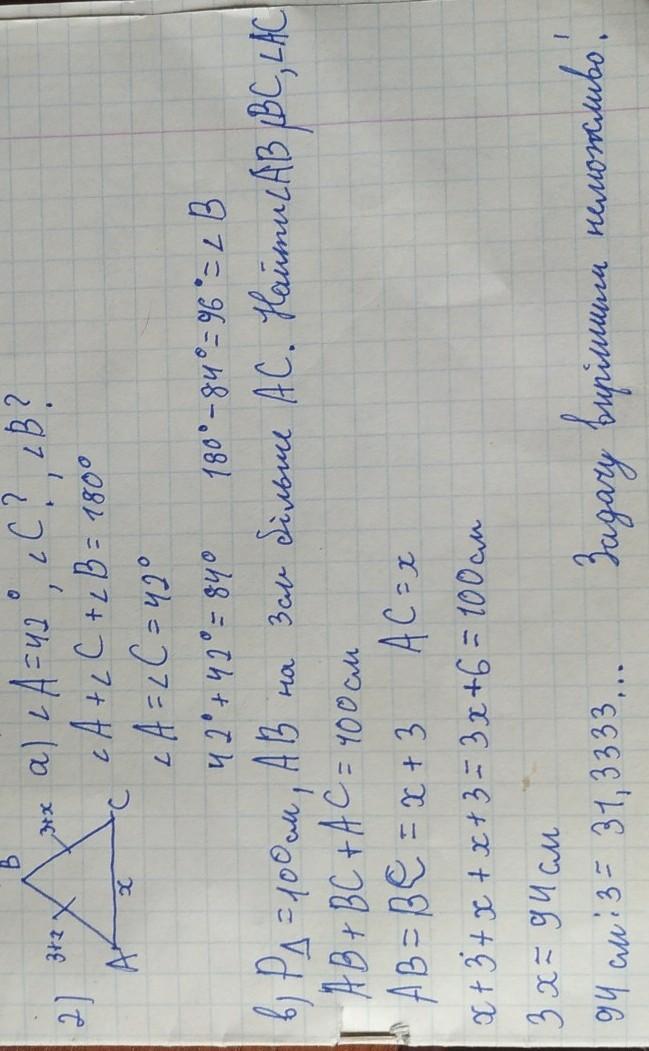 2)
B
3+x
3+x
A
x
C
а) ∠A=42°, ∠C?, ∠B?
∠A+∠C+∠B=180°
∠A=∠C=42°
42°+42°=84° 180°-84°=96°=∠B
в) P△=100см, AB на 3см більше AC. Найти ∠AB, ∠BC, ∠AC
AB+BC+AC=100см
AB=BC=x+3 AC=x
x+3+x+x+3=3x+6=100см
3x=94см
94см:3=31,3333... Задачу вирішити неможливо!